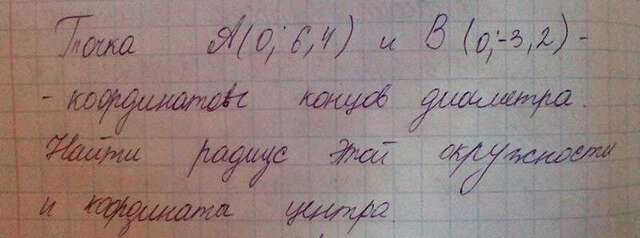 Точка A(0; 6,4) и B (0;-3,2) -
- координаты концов диаметра.
Найти радиус этой окружности
и координаты центра.